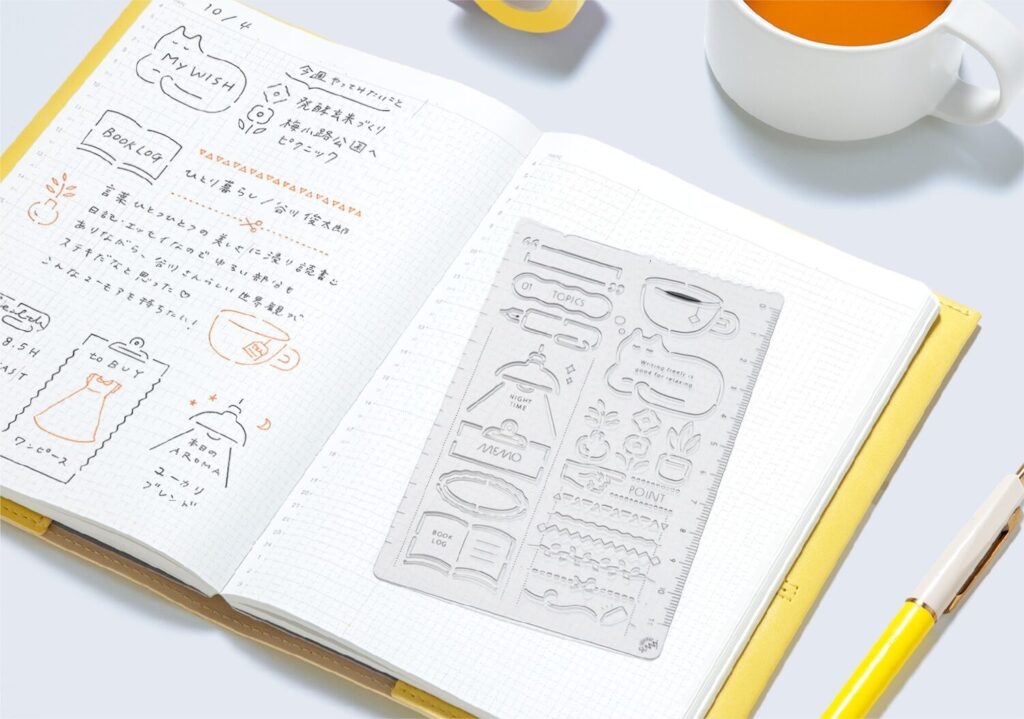 10/4
MY WISH
今週やってけたいこと
発酵玄米づくり
梅小路公園へ
ピクニック
BOOK LOG
ひとり暮らし/谷川俊太郎
言葉ひとつひとつの美しさに浸り読書
日記・エッセイなのでゆるい部分も
ありながら、谷川さんらしい世界観が
ステキだなと思った♡
こんなユーモアを持ちたい!
8.5H
to BUY
ワンピース
本日の
AROMA
ユーカリ
ブレンド
01 TOPICS
Writing freely is
good for relaxing
NIGHT
TIME
MEMO
POINT
BOOK
LOG